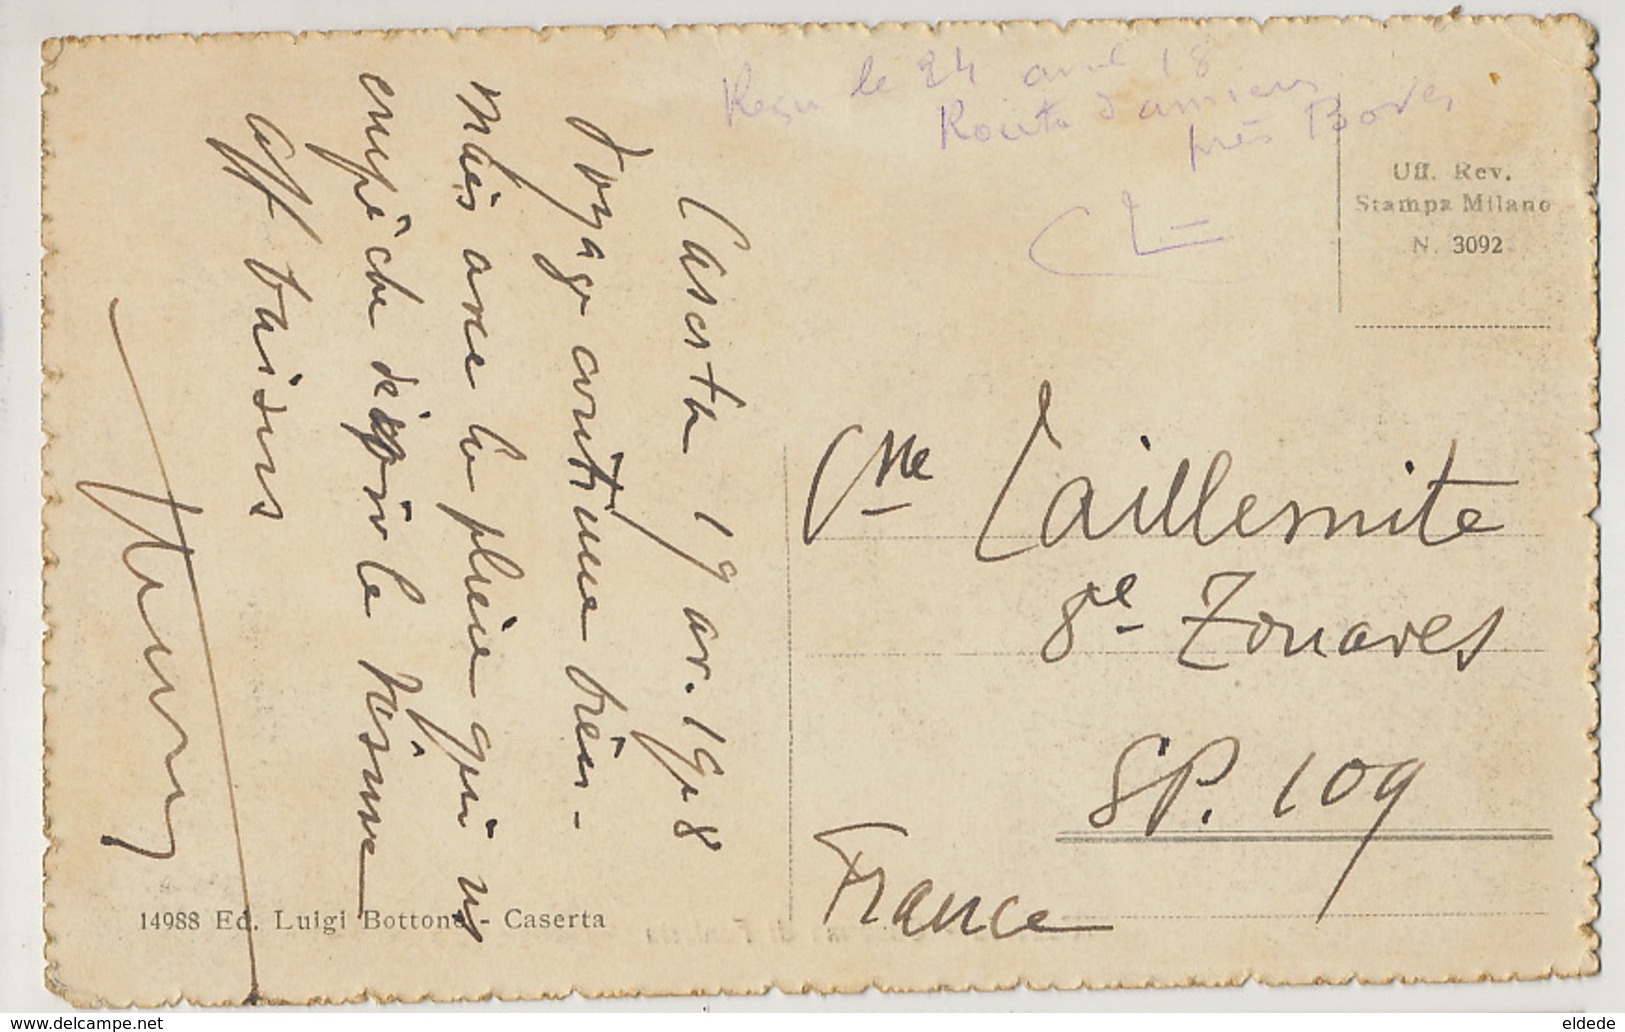 Reçu le 24 avril 18
Route d'amiens
près Boves
Uff. Rev.
Stampa Milano
N. 3092
Caserta 19 av. 1918
Voyage continue bien -
mais avec la pluie qui ns
empêche de voir le Vésuve
aff baisers
Cne Taillemite
8e Zouaves
SP. 109
France
14988 Ed. Luigi Bottone - Caserta
www.delcampe.net
eldede